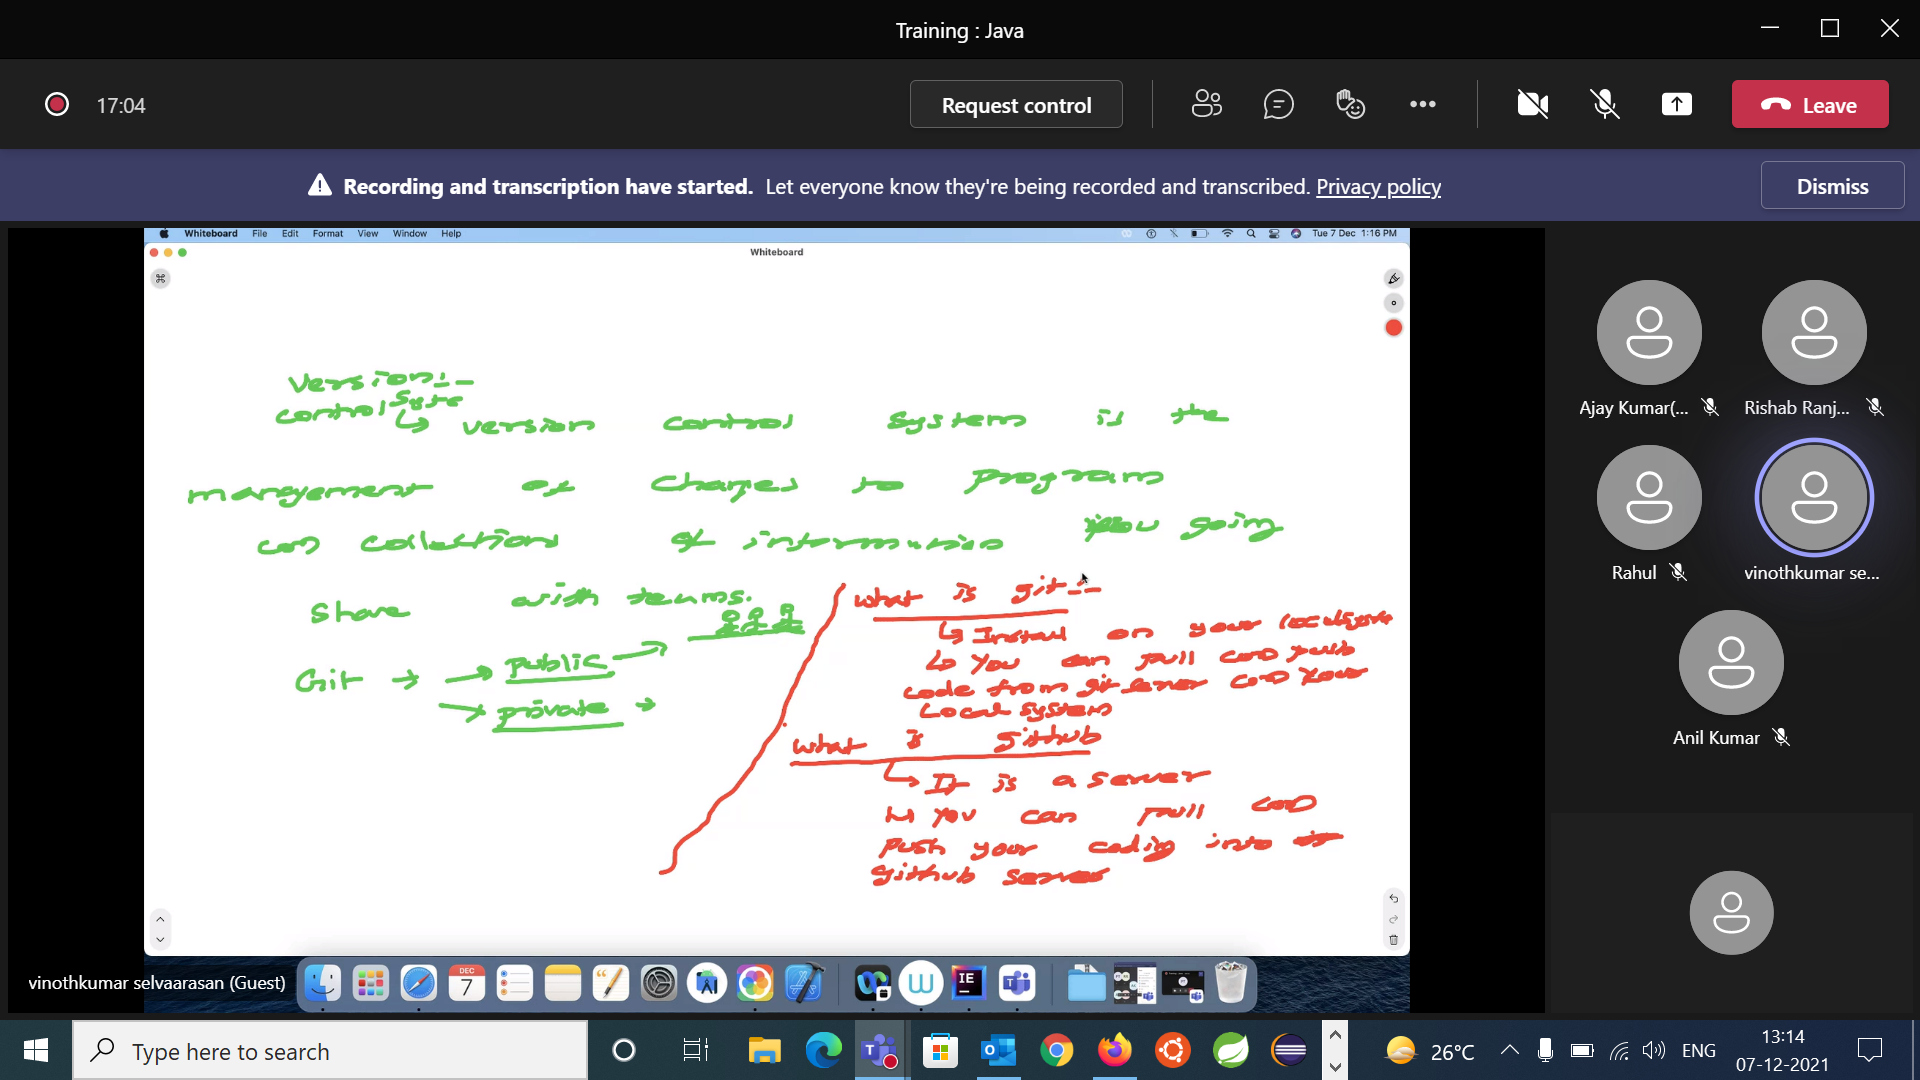 Training : Java
17:04
Request control
Leave
Recording and transcription have started. Let everyone know they're being recorded and transcribed. Privacy policy
Dismiss
Whiteboard File Edit Format View Window Help
Tue 7 Dec 1:16 PM
Whiteboard
Version:-
control Syste
version control System is the
management of changes to program
and collections of information you going
Share with teams.
Git
public
private
What is git:-
Install on your localsystem
You can pull and push
code from git server and your
Local system
What is github
It is a server
You can pull and
push your coding into
github server
Ajay Kumar(...
Rishab Ranj...
Rahul
vinothkumar se...
Anil Kumar
vinothkumar selvaarasan (Guest)
DEC
7
IE
Type here to search
26°C
ENG
13:14
07-12-2021